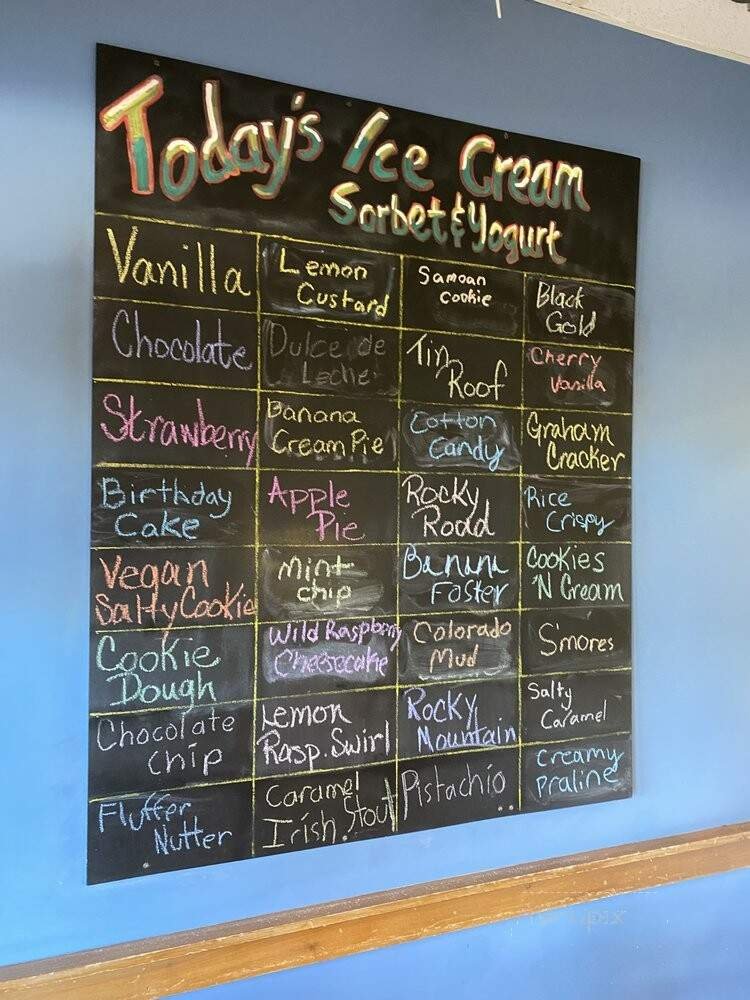 Today's Ice Cream
Sorbet & Yogurt
Vanilla
Lemon
Custard
Samoan
cookie
Black
Gold
Chocolate
Dulce de
Leche
Tin
Roof
Cherry
Vanilla
Strawberry
Banana
Cream Pie
Cotton
Candy
Graham
Cracker
Birthday
Cake
Apple
Pie
Rocky
Road
Rice
Crispy
Vegan
Salty Cookie
Mint
chip
Banana
Foster
Cookies
'N Cream
Cookie
Dough
Wild Raspberry
Cheesecake
Colorado
Mud
S'mores
Chocolate
chip
Lemon
Rasp. Swirl
Rocky
Mountain
Salty
Caramel
Fluffer
Nutter
Caramel
Irish Stout
Pistachio
Creamy
praline